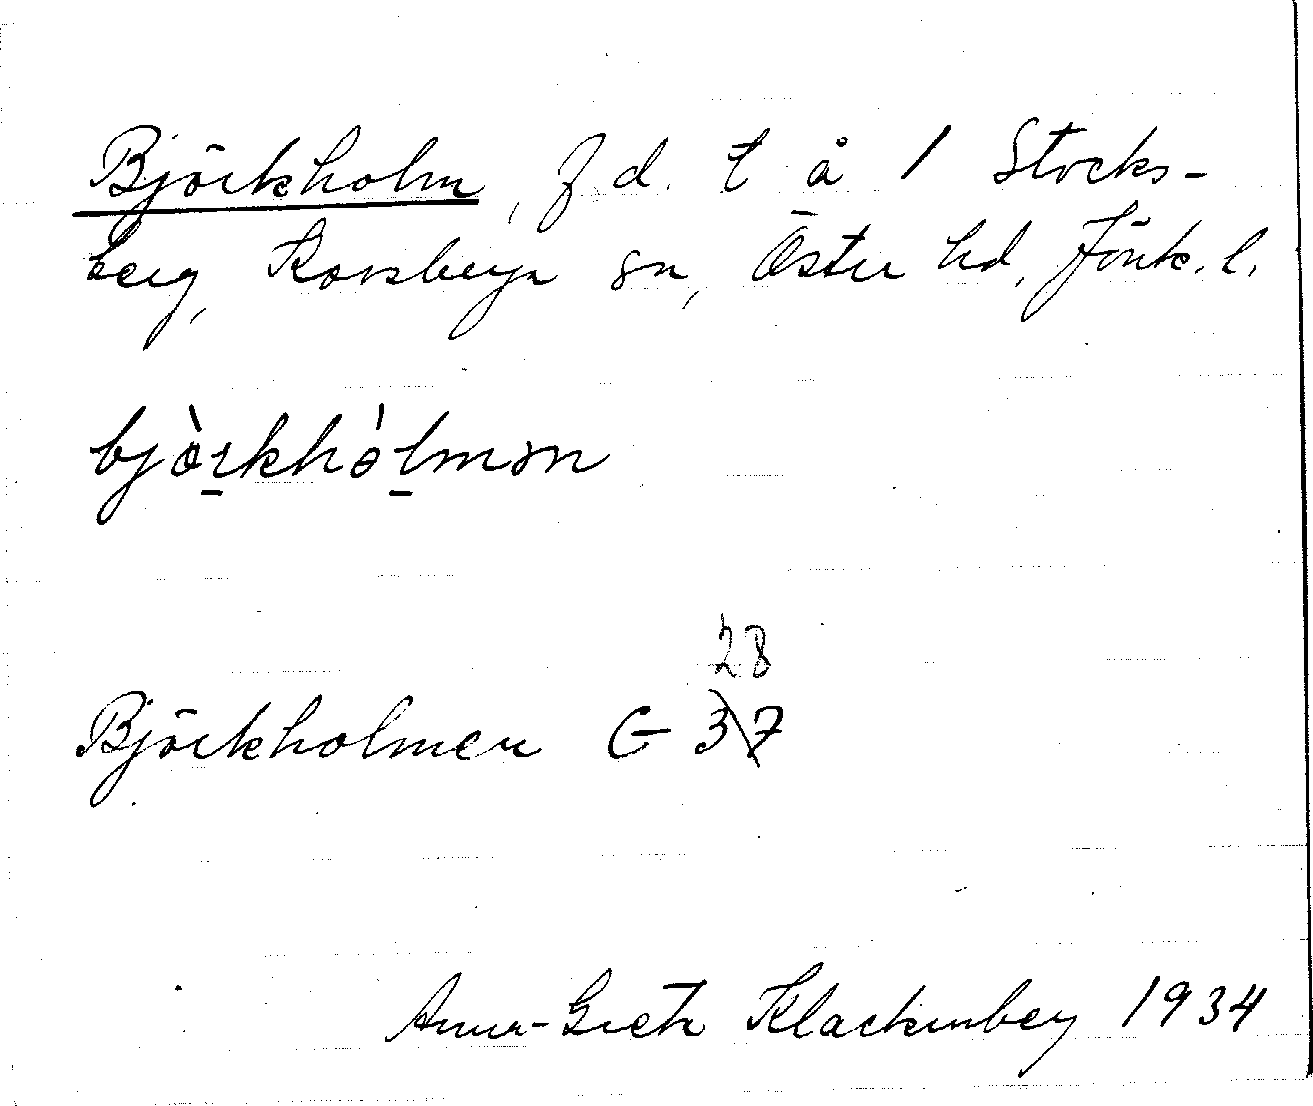 Björkholm, f d. t å 1 Stocks-
berg, Korsberga sn, Östra hd, Jönk. l.
bjòrkhólmən
28
Björkholmen G 37
Anna-Greta Klackenberg 1934